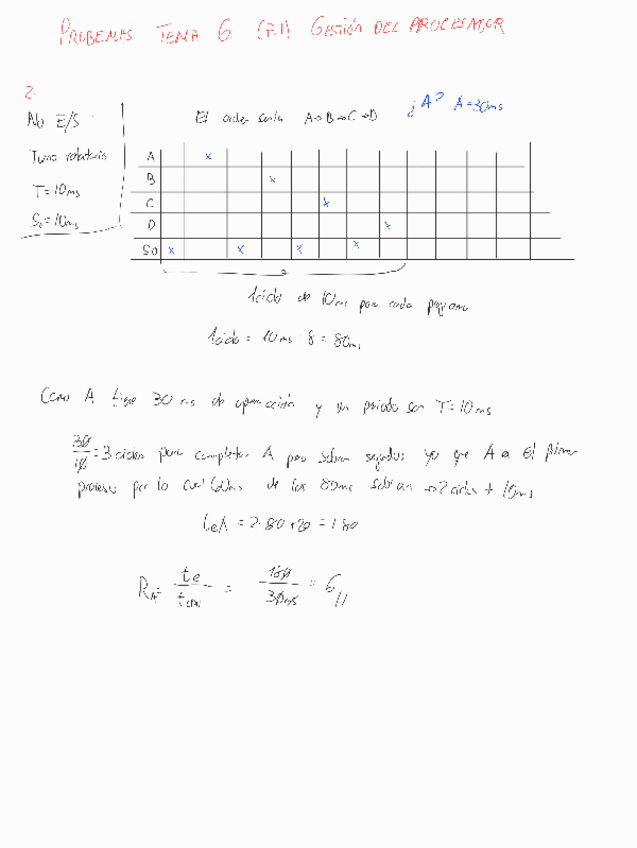 PROBLEMAS TEMA 6 (7.1) GESTIÓN DEL PROCESADOR
2.
No E/S
El orden sería A→B→C→D
¿A? A=30ms
Turno rotatorio
T=10ms
So=10ms
A x
B x
C x
D x
SO x x x x
1 ciclo de 10ms para cada programa
1 ciclo = 10ms 8 = 80ms
Como A tiene 30 ms de operación y un periodo son T=10ms
30/10 = 3 ciclos para completar A pero sobran segundos ya que A es El primer
proceso por lo cual de los 80ms sobran →2 ciclos + 10ms
teA = 2·80+20 = 180
RA = te/tcpu = 180/30ms = 6//